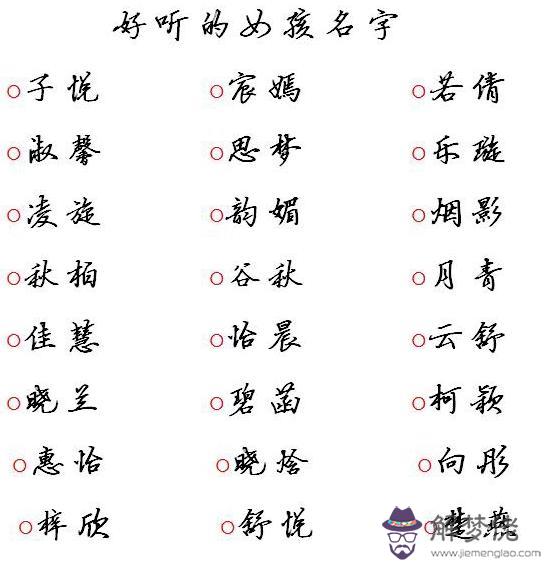 好听的女孩名字
○子悦 ○宸嫣 ○若倩
○淑馨 ○思梦 ○乐璇
○凌旋 ○韵媚 ○烟影
○秋柏 ○谷秋 ○月青
○佳慧 ○怡晨 ○云舒
○晓兰 ○碧菡 ○柯颖
○惠怡 ○晓 ○向彤
○梓欣 ○舒悦 ○楚燕
解梦佬
www.jiemenglao.com